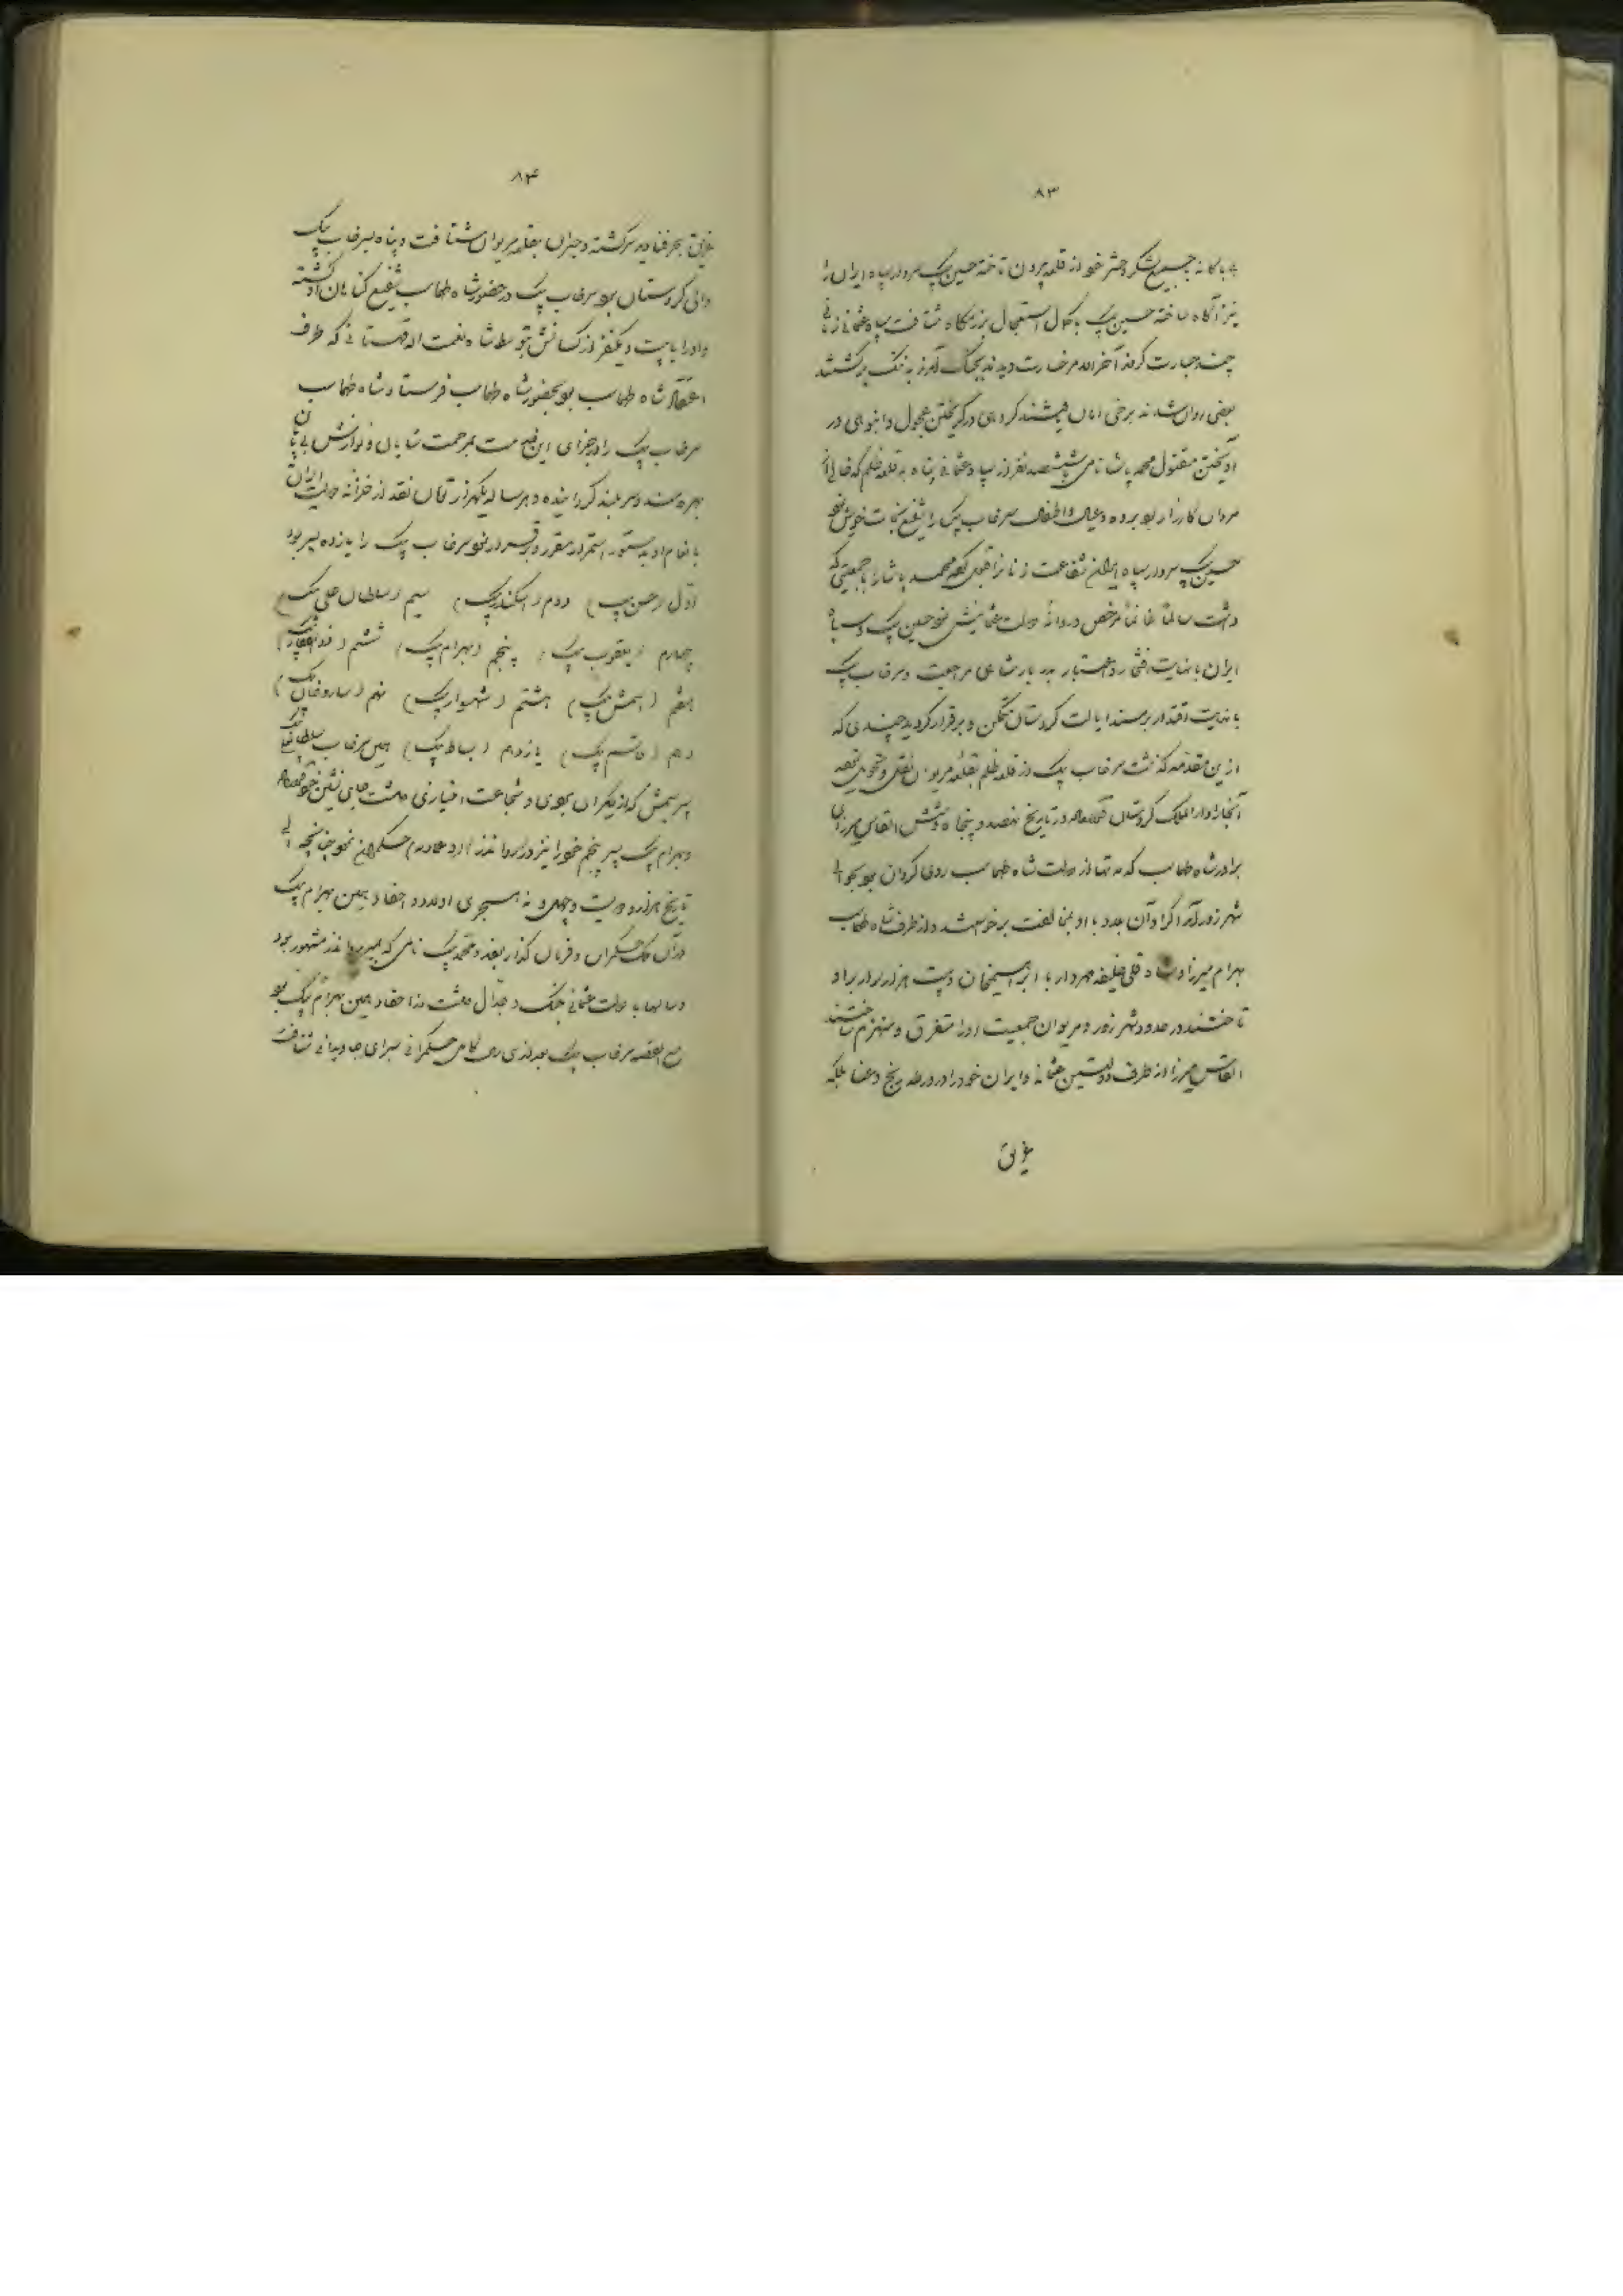 ۸۳
جمیع لشکر و حشر خود از قلعه بیرون تاخته حسین بیک سردار سپاه ایران را
نیز آگاه ساخته حسین بیک با کمال استعجال بزرمگاه شتافت سپاه عثمانی
جسارت کرده آخر الامر خسارت دیدند بجنگ آمده به ننگ برگشتند
بعضی روان شدند برخی امان گروهی در گریختن عجول و انبوهی در
آویختن مقتول محمد پاشا نامی با ششصد نفر از سپاه عثمانی پناه به قلعه ظلم که خالی از
مردان کارزار بود برده و عیال و اطفال سرخاب بیک را شفیع نجات خویش نمود
حسین بیک سردار سپاه ایران شفاعت زنانرا قبول کرده محمد پاشا را با جمعیتی که
داشت سالماً غانماً مرخص و روانه دولت عثمانیش نمود حسین بیک و سپاه
ایران با نهایت افتخار و اعتبار بدربار شاهی مراجعت و سرخاب بیک
با نهایت اقتدار بر مسند ایالت کردستان متمکن و برقرار گردید چندی که
ازین مقدمه گذشت سرخاب بیک از قلعه ظلم بقلعه مریوان نقل و تحویل نموده
آنجا را دار الملک کردستان در تاریخ نهصد و پنجاه و شش القاس میرزای
برادر شاه طهماسب که مدتها از دولت شاه طهماسب روی گردان بود بحوالی
شهرزور آمد اکراد آن حدود با او بمخالفت برخواستند و از طرف شاه طهماسب
بهرام میرزا و شاه قلی خلیفه مهردار با ابراهیمخان و بیست هزار سوار بر او
تاختند در حدود شهرزور و مریوان جمعیت او را متفرق و منهزم ساختند
القاس میرزا از طرف دولتین عثمانی و ایران خود را در ورطه رنج و عنا بلکه
غریق
۸۴
غریق بحر فنا دیده سرگشته و حیران بقلعه مریوان شتافت و پناه بسرخاب بیک
والی کردستان برد سرخاب بیک در حضور شاه طهماسب شفیع گناهان او گشته
و او را با یکنفر از کسانش بتوسط شاه نعمت الله قهستانی که طرف
اعتقاد شاه طهماسب بود بحضور شاه طهماسب فرستاد شاه طهماسب
سرخاب بیک را در جزای این خدمت بمرحمت شایان و نوازش بی پایان
بهره مند و سربلند گردانیده و هر ساله یکهزار تومان نقد از خزانه دولت ایران
بانعام او بدستور استمرار مقرر و برقرار نمود سرخاب بیک را یازده پسر بود
اول (حسن بیک) دوم (اسکندر بیک) سیم (سلطان علی بیک)
چهارم (یعقوب بیک) پنجم (بهرام بیک) ششم (ذوالفقار بیک)
هفتم (اسمش بیک) هشتم (شهسوار بیک) نهم (ساروخان بیک)
دهم (قاسم بیک) یازدهم (بساط بیک) همین سرخاب بیک سلطانعلی
پسر سیمش که از دیگران بهوش و شجاعت امتیازی داشت جای نشین خود نموده
و بهرام بیک پسر پنجم خود را نیز در رواندز حکمران نمود چنانچه الی
تاریخ هزار و دویست و چهل و نه هجری اولاد و احفاد همین بهرام بیک
در آن ملک حکمران و فرمان گذار بودند و محمد بیک نامی که بمیر رواندز مشهور بود
و سالها با دولت عثمانی جنگ و جدال داشت از احفاد همین بهرام بیک بود
مع القصه سرخاب بیک بعد از سی سال حکمرانی بسرای جاودانی شتافت